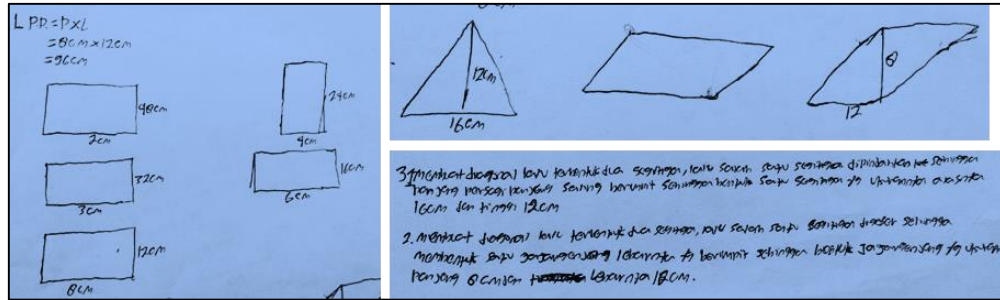 L P.P. = P x L
= 8cm x 12cm
= 96cm
48cm
2cm
24cm
4cm
32cm
3cm
16cm
6cm
12cm
8cm
12cm
16cm
8
12
3. membuat diagonal lalu terbentuk dua segitiga, lalu salah satu segitiga dipindahkan sehingga
panjang persegi panjang saling berimpit sehingga bentuk satu segitiga yg alasnya
16cm dan tinggi 12cm
2. membuat diagonal lalu terbentuk dua segitiga, lalu salah satu segitiga digeser sehingga
membentuk satu jajargenjang lebarnya yg berimpit sehingga bentuk jajargenjang yg
panjang 8cm dan lebarnya 12cm.